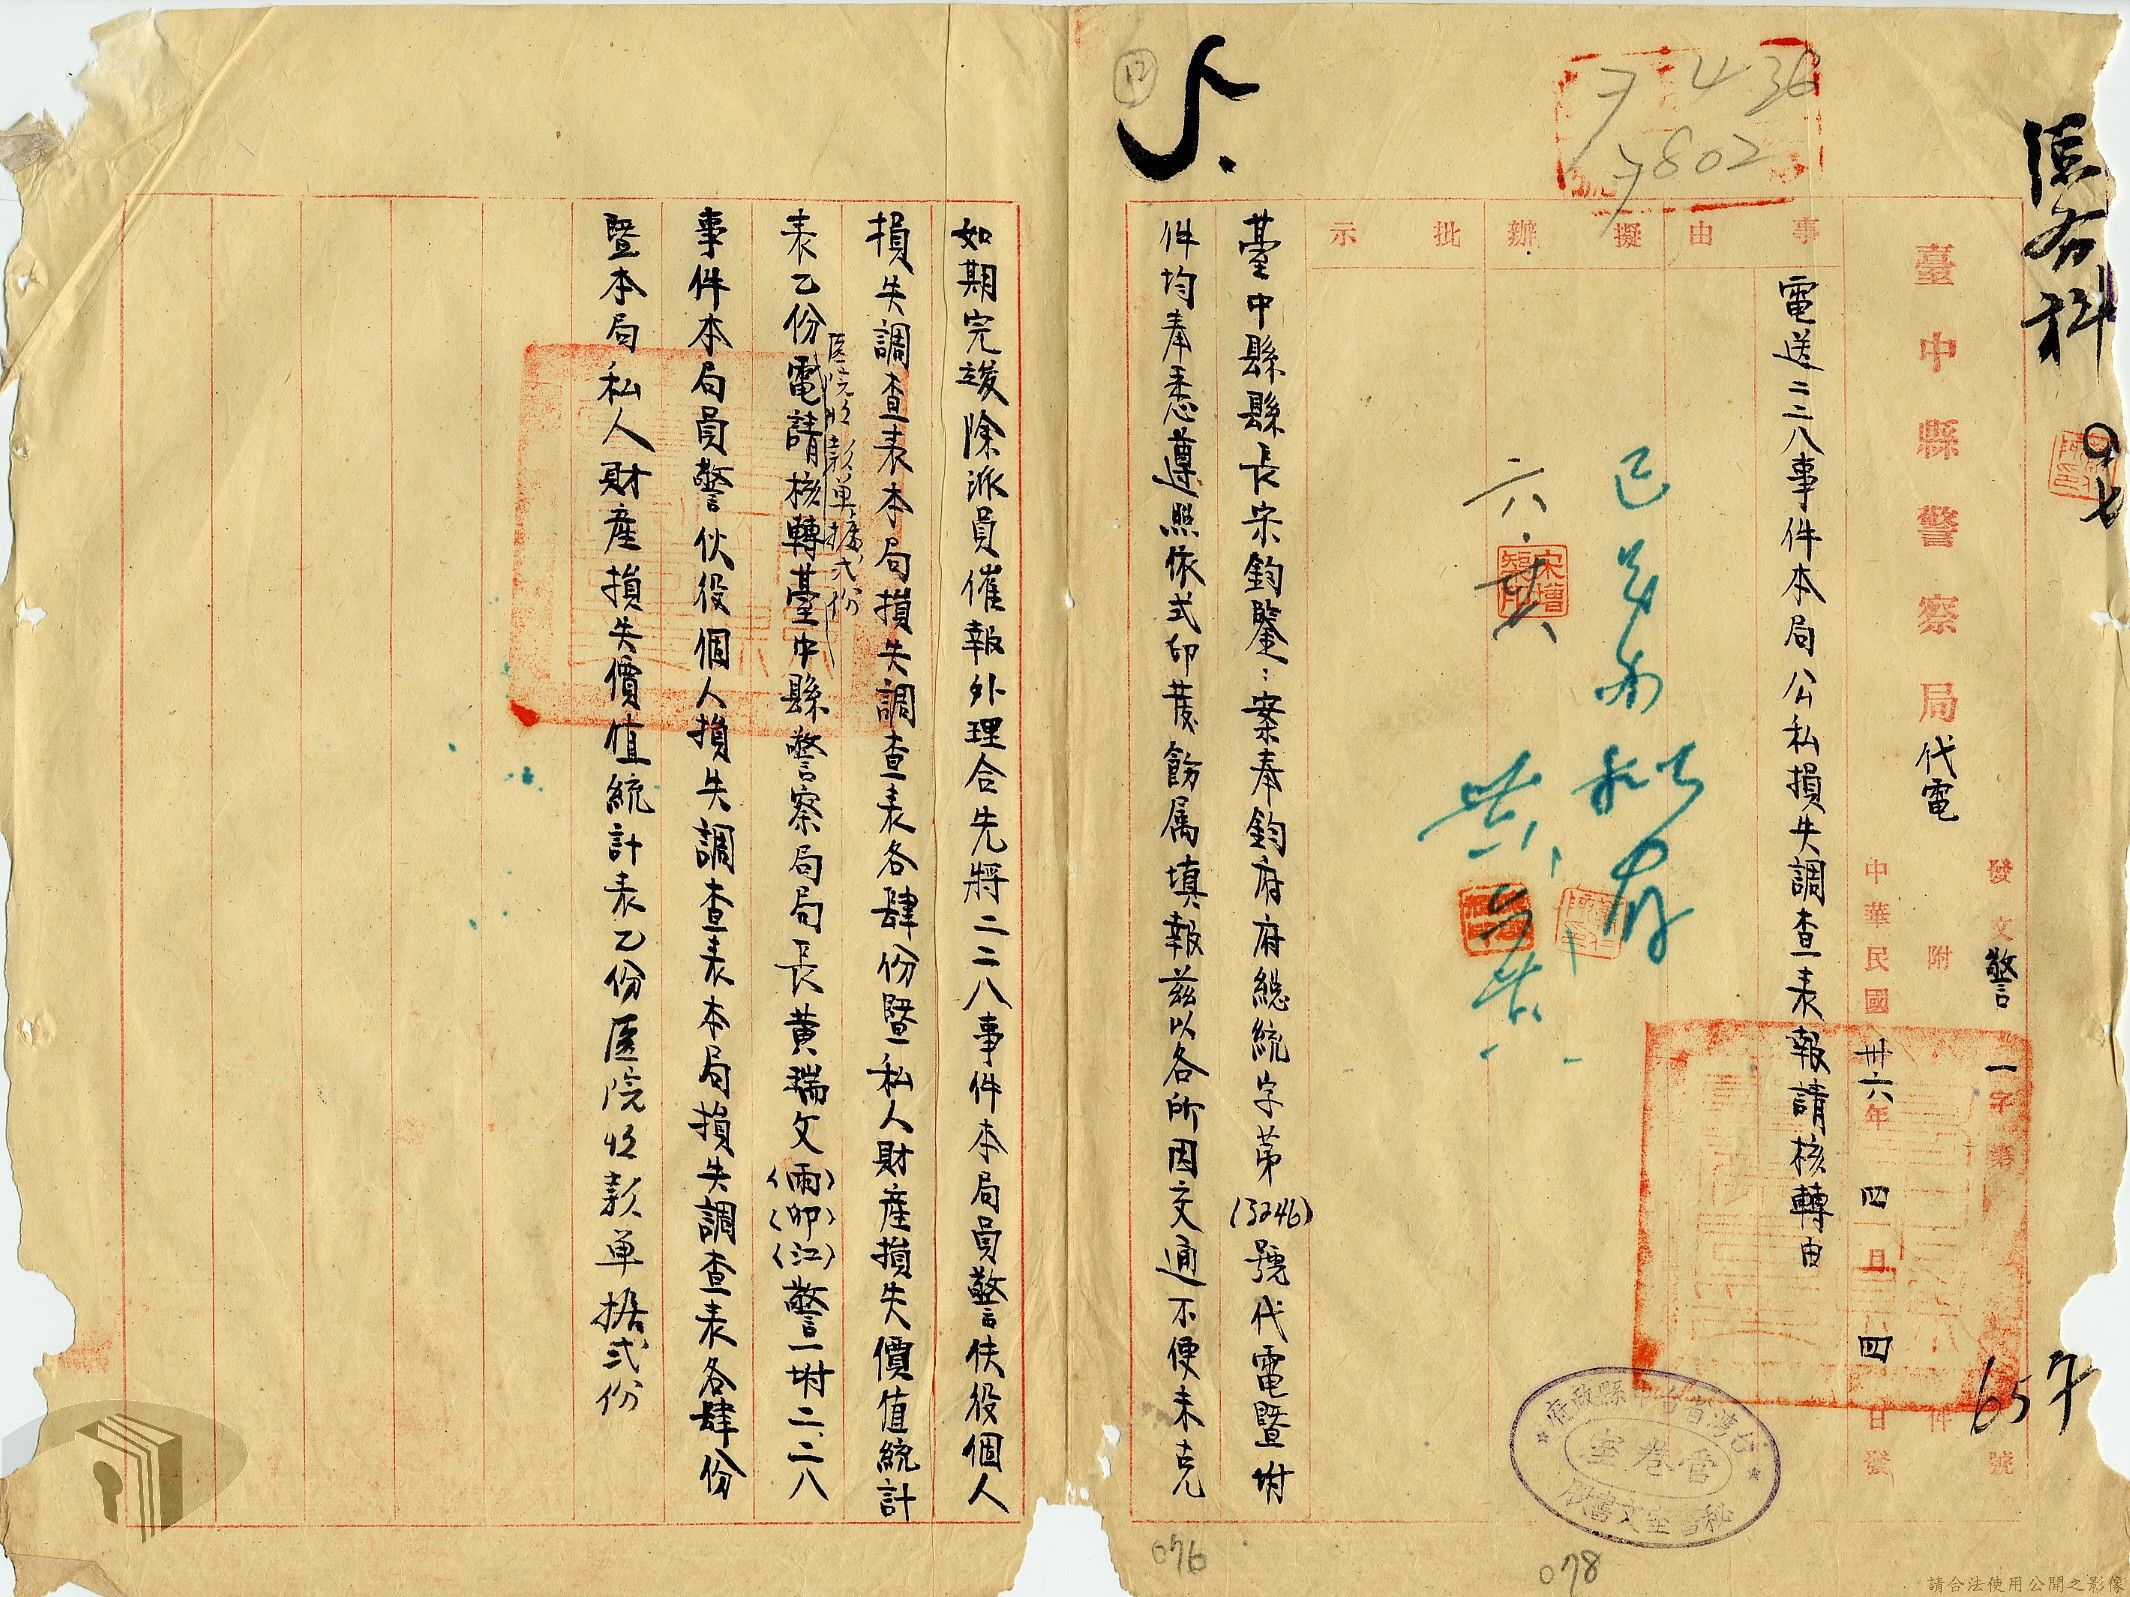 臺中縣警察局代電
發文警一字第 號
附 件
中華民國卅六年四月四日發
事由
擬辦
批示
電送二二八事件本局公私損失調查表報請核轉由
臺中縣縣長宋鈞鑒：案奉鈞府府總統字第(3246)號代電暨坿
件均奉悉遵照依式印蕟飭属填報茲以各所因交通不便未克
如期完竣除派員催報外理合先將二二八事件本局員警伕役個人
損失調查表本局損失調查表各肆份暨私人財產損失價值統計
表乙份電請核轉臺中縣警察局局長黃瑞文(雨)(卯)(江)警一坿二二八
医院收款單據弍份
事件本局員警伙役個人損失調查表本局損失調查表各肆份
暨本局私人財產損失價值統計表乙份医院收款單据弍份
7 4 36
7802
台灣省台中縣政府
管卷室
秘書室文書股
076
078
請合法使用公開之影像